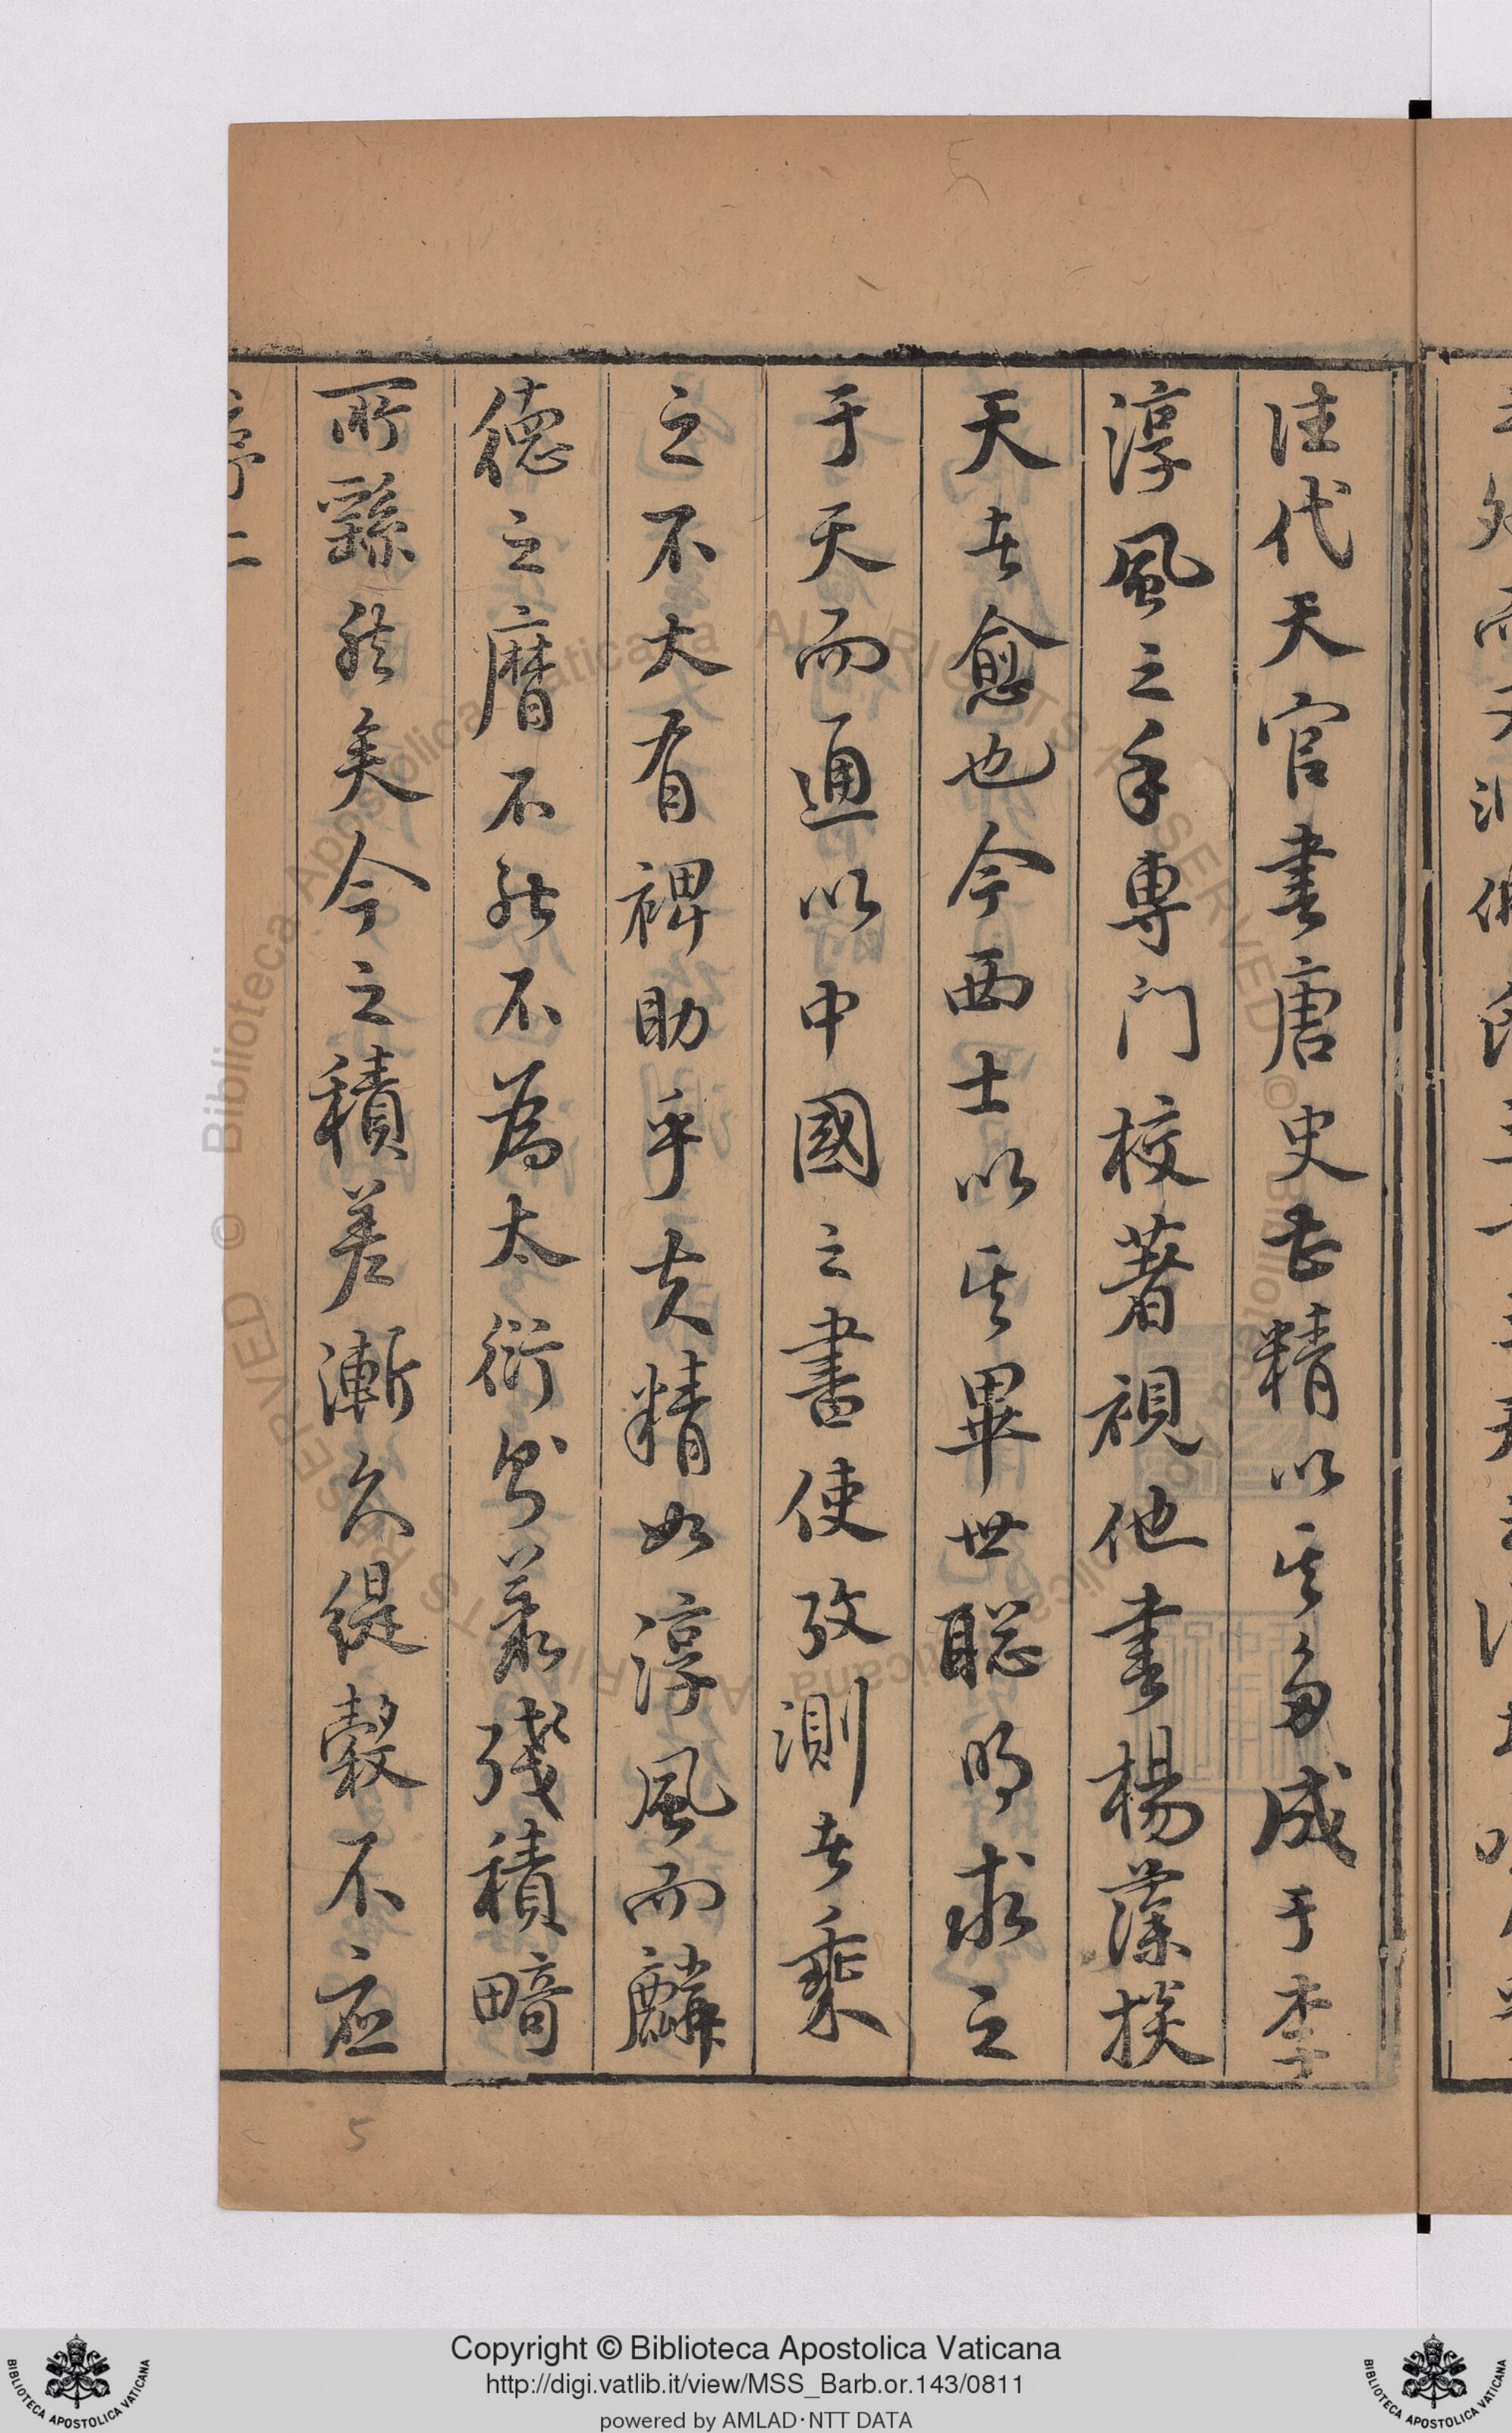 往代天官書唐史志精以其多成于李
淳風之手專門校著視他書楊藻掞
天者愈也今西士以其畢世聡明求之
于天而通以中國之書使攷測者乘
之不大有裨助乎夫精如淳風而麟
德之曆不能不為太衍名義殘積畸
所繇然矣今之積差漸久緹縠不應
序二
5
Copyright © Biblioteca Apostolica Vaticana
http://digi.vatlib.it/view/MSS_Barb.or.143/0811
powered by AMLAD·NTT DATA
BIBLIOTECA APOSTOLICA VATICANA
BIBLIOTECA APOSTOLICA VATICANA
© Biblioteca Apostolica Vaticana ALL RIGHTS RESERVED